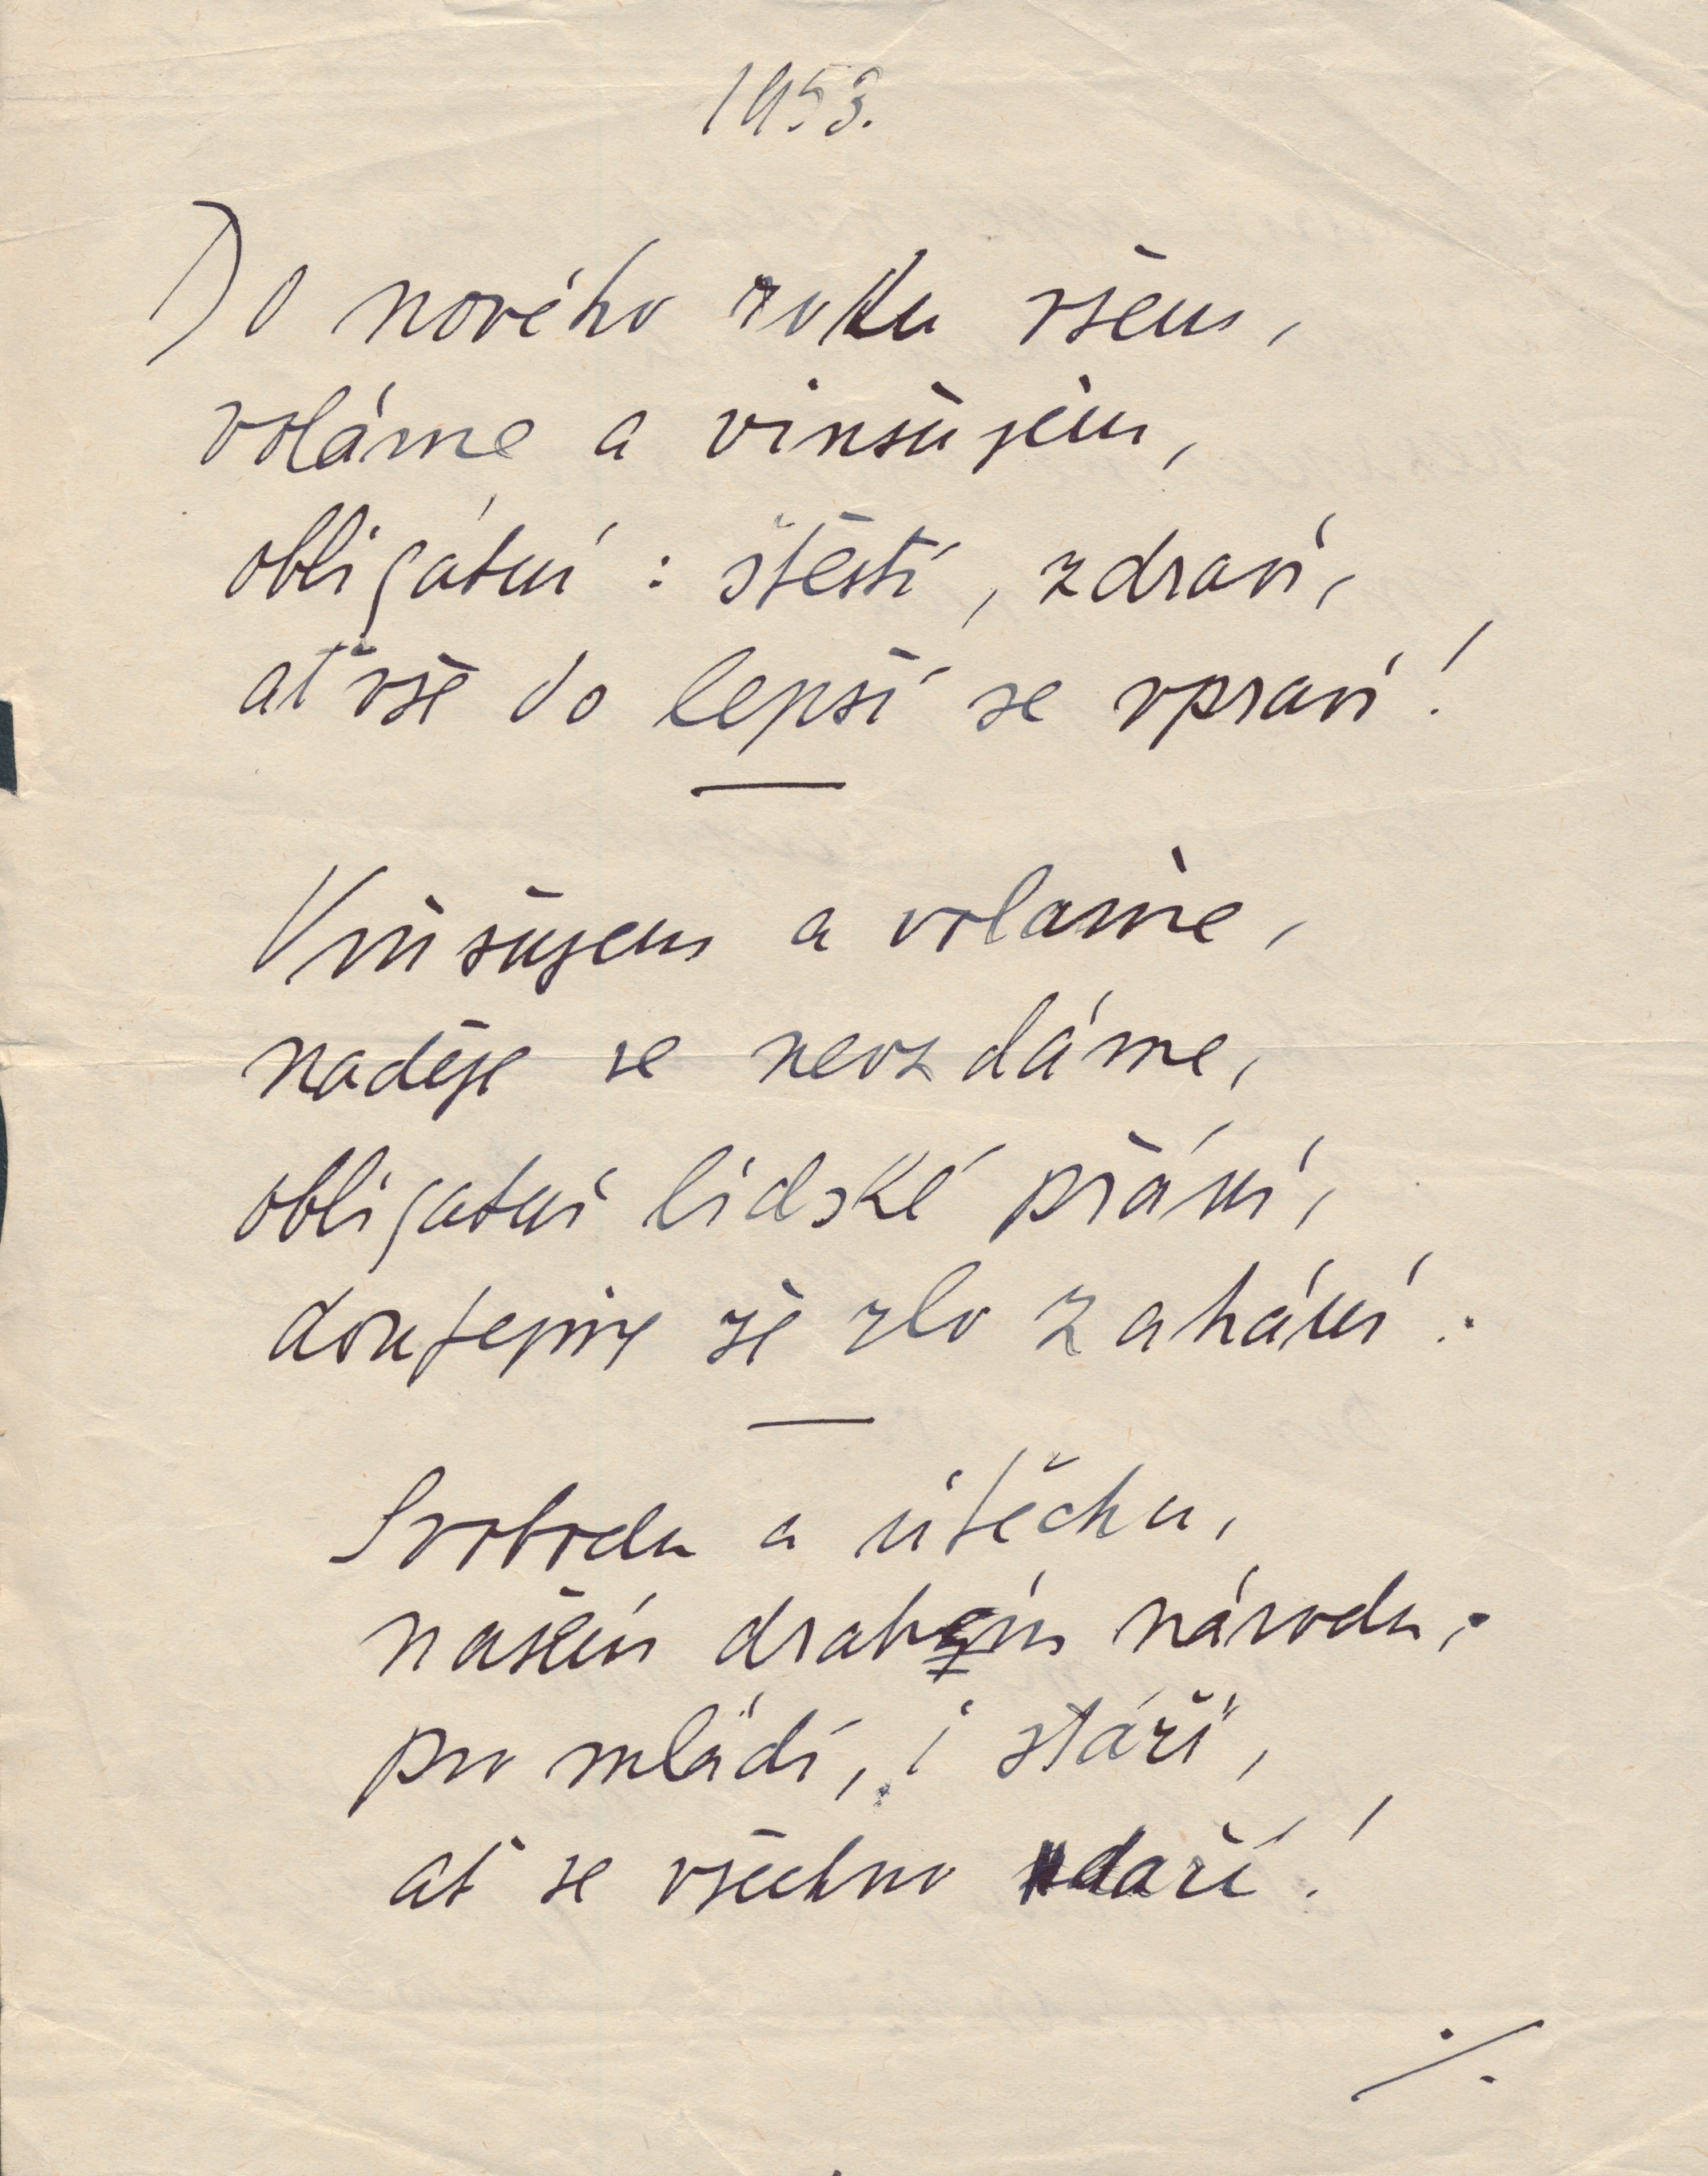 1953.
Do nového roku všem,
voláme a vinšujem,
obligátní : štěstí, zdraví,
ať vše do lepší se vpraví!
Vinšujem a voláme,
naděje se nevzdáme,
obligatní lidské přání,
doufejme že zlo zahání :
Svobodu a útěchu,
našém drahém národu,
pro mládí, i stáří,
ať se všechno daří!
./.